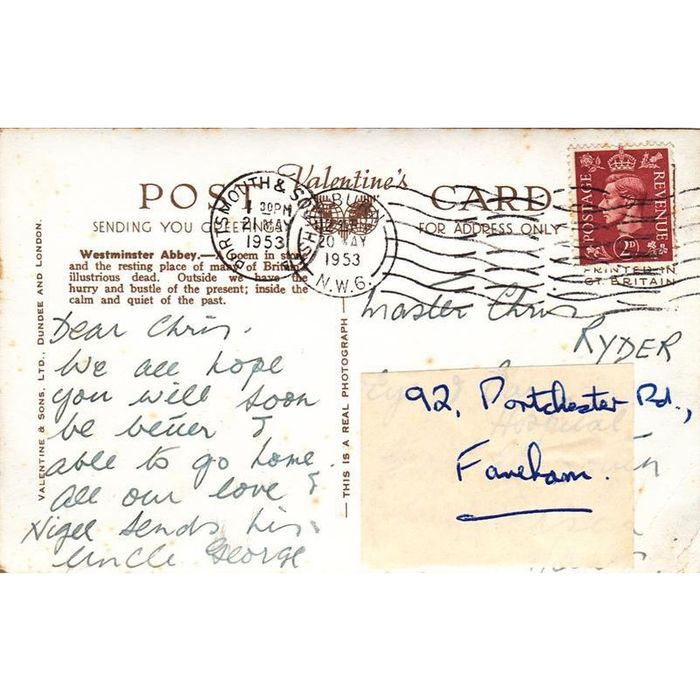 Valentine's
POST CARD
SENDING YOU GREETINGS
FOR ADDRESS ONLY
Westminster Abbey.— poem in
and the resting place of of
illustrious dead. Outside we have the
hurry and bustle of the present; inside the
calm and quiet of the past.
VALENTINE & SONS, LTD., DUNDEE AND LONDON.
— THIS IS A REAL PHOTOGRAPH —
PORTSMOUTH &
30PM
21 MAY
1953
20 MAY
1953
N.W.6.
POSTAGE
REVENUE
2D
PRINTED IN
GT BRITAIN
Dear Chris.
We all hope
you will soon
be better &
able to go home.
All our love &
Nigel sends his.
Uncle George
Master Chris
RYDER
92, Portchester Rd.,
Fareham.
Hospital